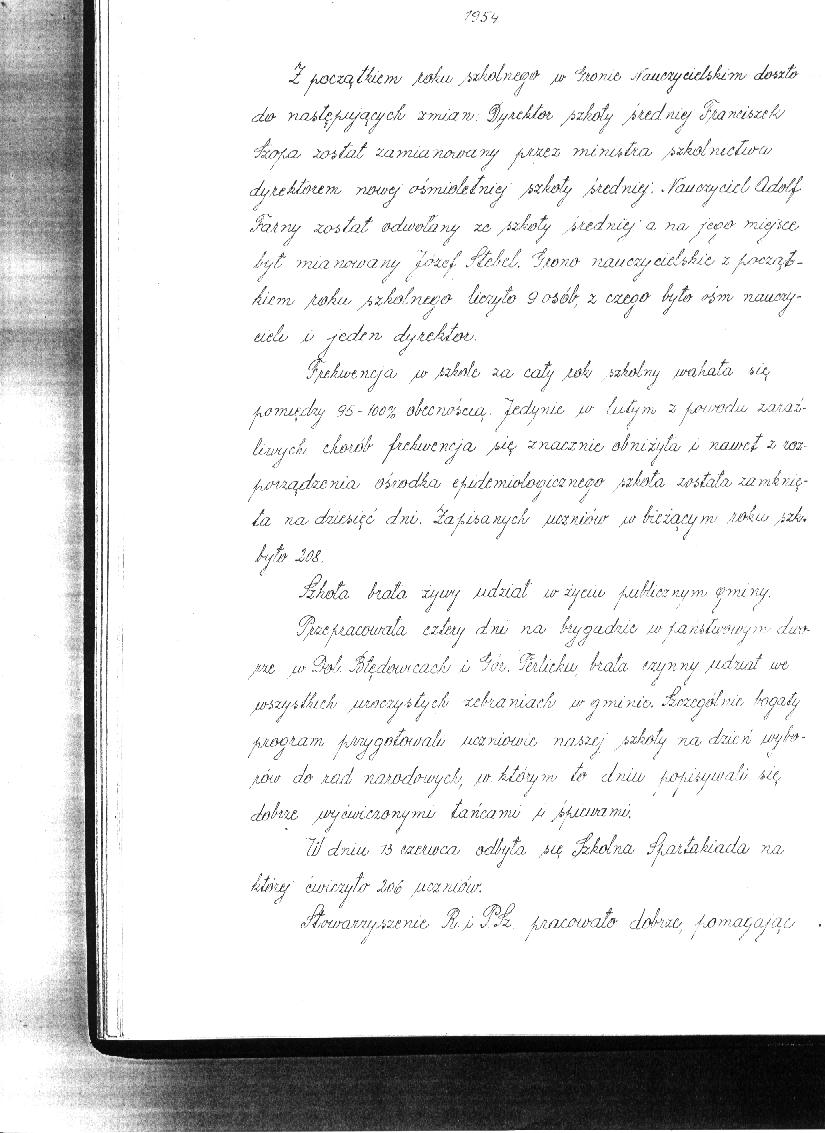 1954
Z początkiem roku szkolnego w Gronie Nauczycielskim doszło
do następujących zmian: Dyrektor szkoły średniej Franciszek
Szopa został zamianowany przez ministra szkolnictwa
dyrektorem nowej ośmioletniej szkoły średniej. Nauczyciel Adolf
Farny został odwołany ze szkoły średniej a na jego miejsce
był mianowany Józef Stebel. Grono nauczycielskie z począt-
kiem roku szkolnego liczyło 9 osób, z czego było ośm nauczy-
cieli i jeden dyrektor.
Frekwencja w szkole za cały rok szkolny wahała się
pomiędzy 95-100% obecnością. Jedynie w lutym z powodu zaraź-
liwych chorób frekwencja się znacznie obniżyła i nawet z roz-
porządzenia ośrodka epidemiologicznego szkoła została zamknię-
ta na dziesięć dni. Zapisanych uczniów w bieżącym roku szk.
było 208.
Szkoła brała żywy udział w życiu publicznym gminy.
Przepracowała cztery dni na brygadzie w państwowym dwo-
rze w Dol. Błędowicach i Gór. Terlicku, brała czynny udział we
wszystkich uroczystych zebraniach w gminie. Szczególnie bogaty
program przygotowali uczniowie naszej szkoły na dzień wybo-
rów do rad narodowych, w którym to dniu popisywali się
dobrze wyćwiczonymi tańcami i śpiewami.
W dniu 13 czerwca odbyła się Szkolna Spartakiada na
której ćwiczyło 206 uczniów.
Stowarzyszenie R. i P. Sz. pracowało dobrze, pomagając